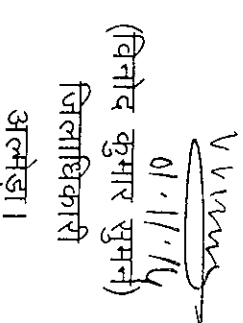 01.11.14
(विनोद कुमार सुमन)
जिलाधिकारी
अल्मोड़ा।